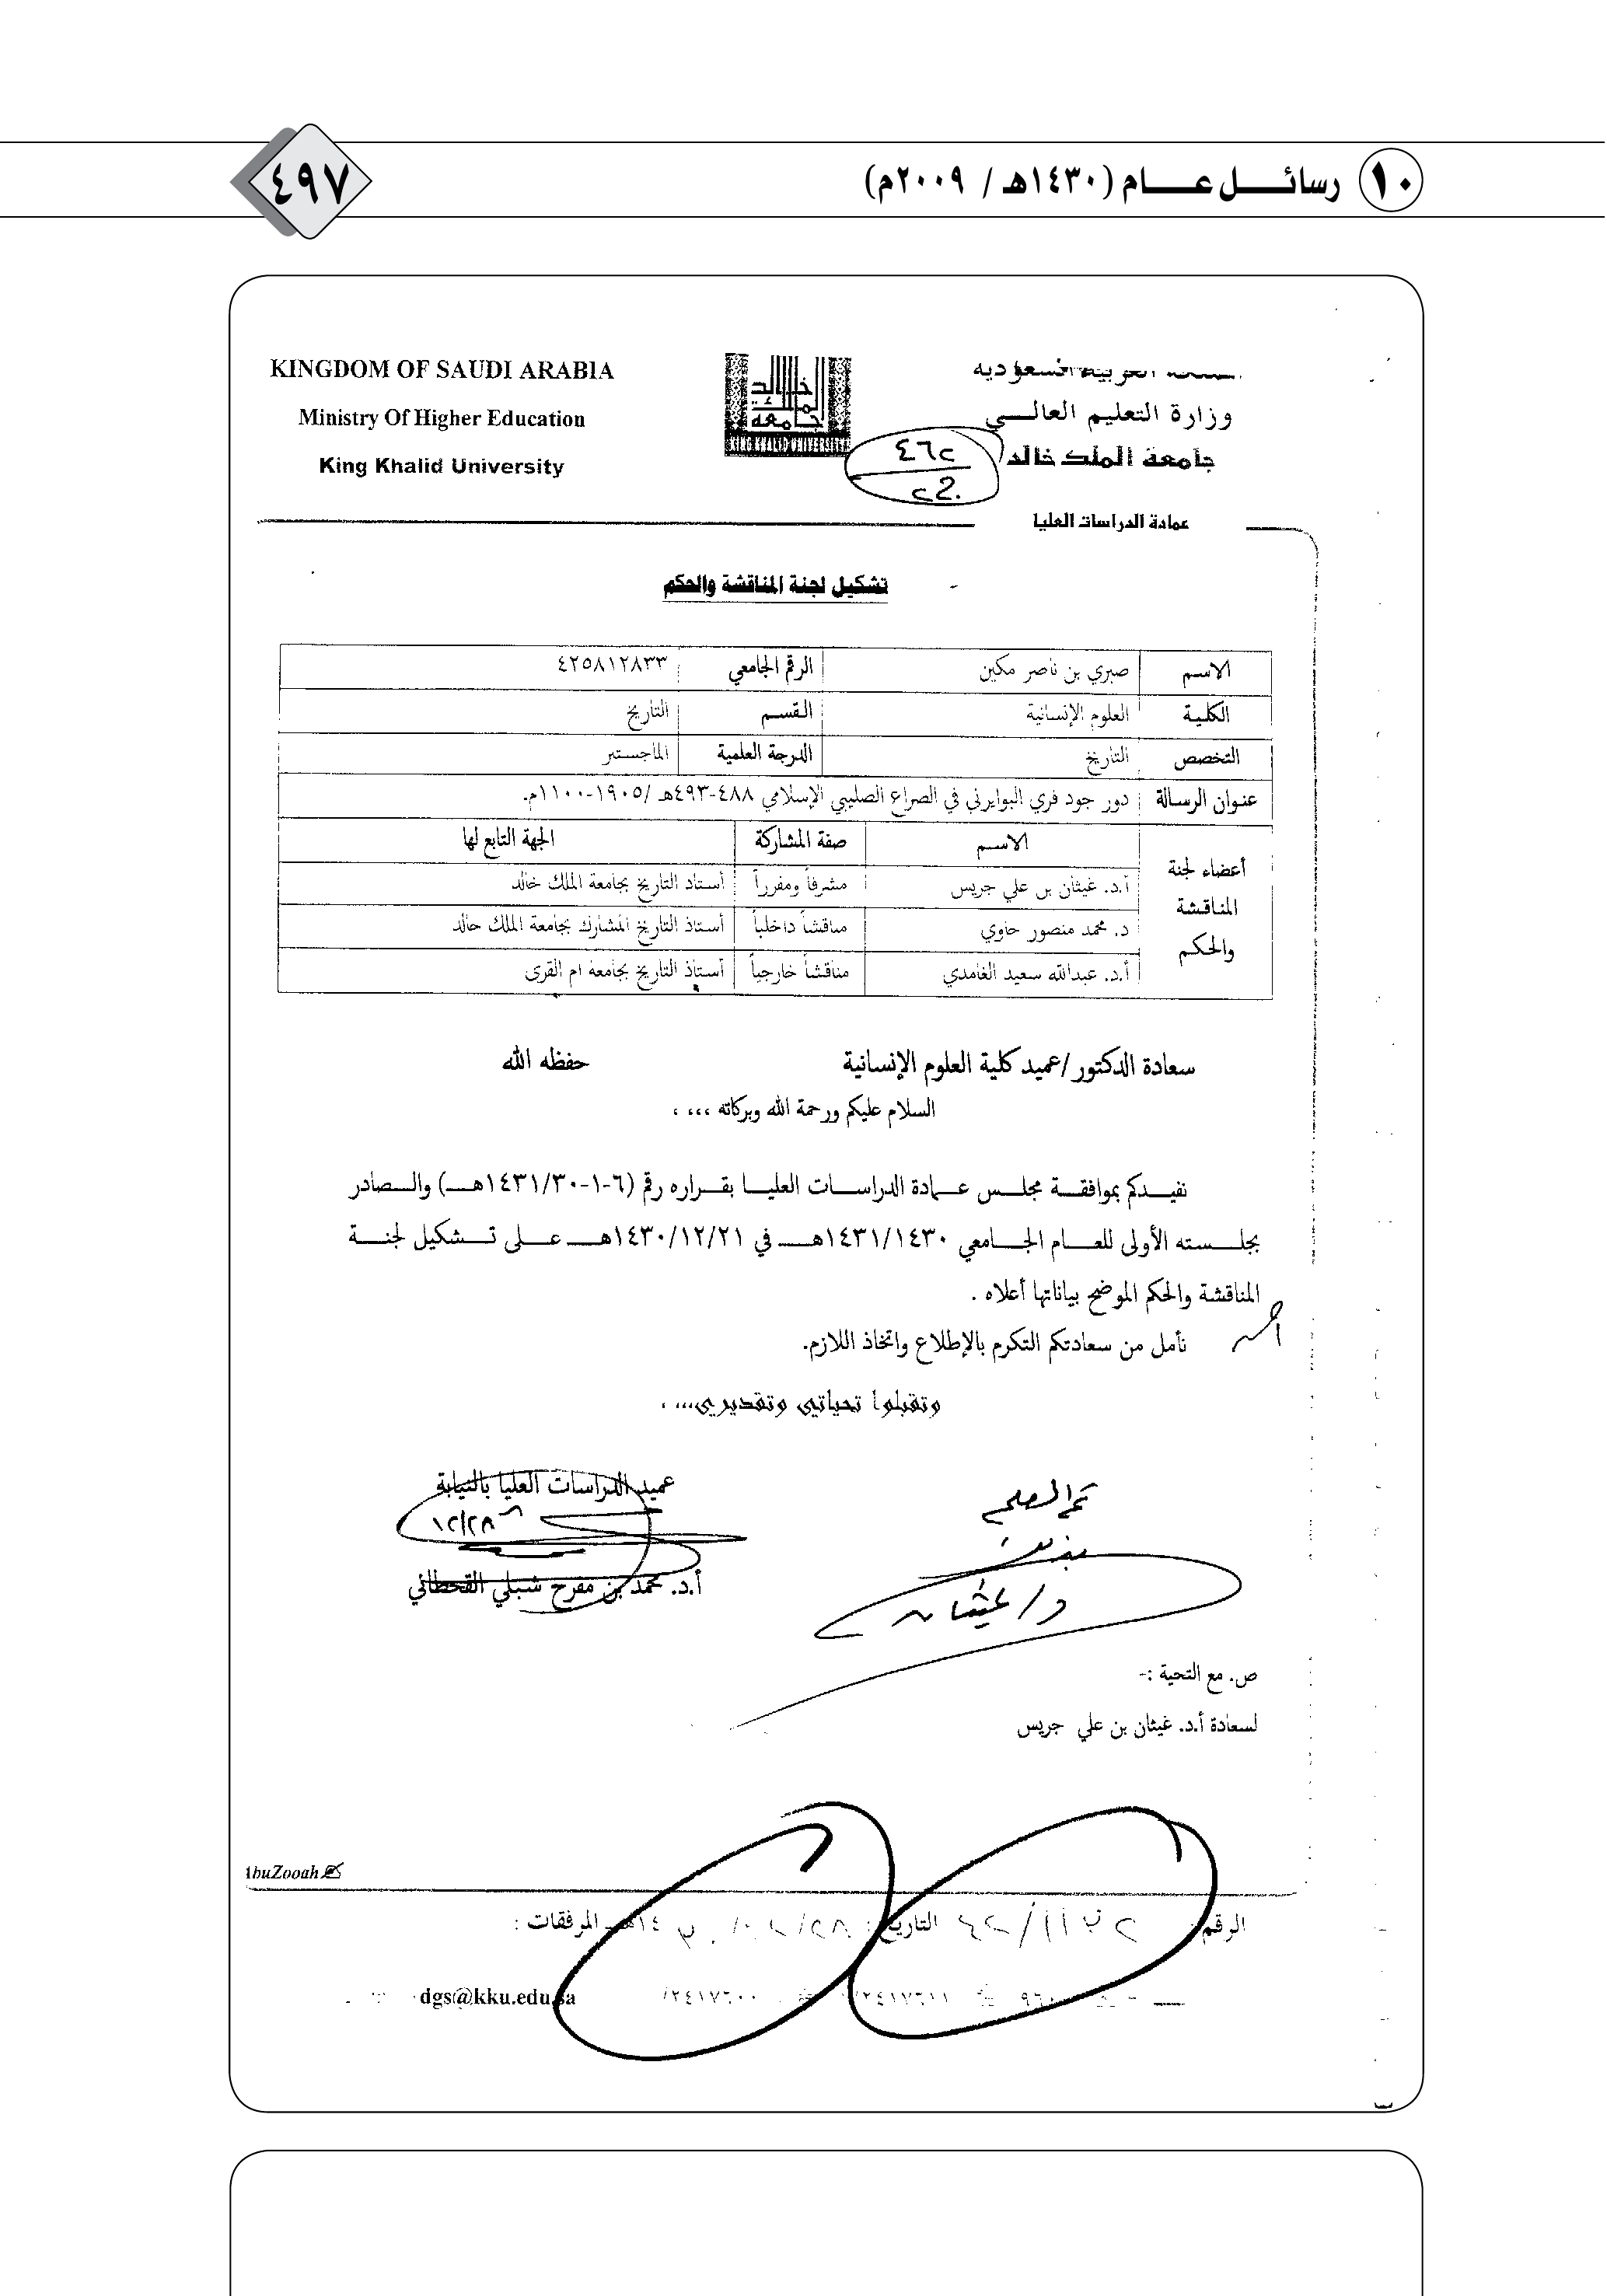 ١٠ رسائل عام (١٤٣٠هـ / ٢٠٠٩م)
٤٩٧
KINGDOM OF SAUDI ARABIA
Ministry Of Higher Education
King Khalid University
العربية السعودية
وزارة التعليم العالي
جامعة الملك خالد
عمادة الدراسات العليا
تشكيل لجنة المناقشة والحكم
الاسم صبري بن ناصر مكين الرقم الجامعي ٤٢٥٨١٢٨٣٣
الكلية العلوم الإنسانية القسم التاريخ
التخصص التاريخ الدرجة العلمية الماجستير
عنوان الرسالة دور جود فري البوايرني في الصراع الصليبي الإسلامي ٤٨٨-٤٩٣هـ /١٩٠٥-١١٠٠م.
أعضاء لجنة المناقشة والحكم
الاسم صفة المشاركة الجهة التابع لها
أ.د. غيثان بن علي جريس مشرفاً ومقرراً أستاذ التاريخ بجامعة الملك خالد
د. محمد منصور حاوي مناقشاً داخلياً أستاذ التاريخ المشارك بجامعة الملك خالد
أ.د. عبدالله سعيد الغامدي مناقشاً خارجياً أستاذ التاريخ بجامعة ام القرى
سعادة الدكتور /عميد كلية العلوم الإنسانية حفظه الله
السلام عليكم ورحمة الله وبركاته ،،، ،
نفيدكم بموافقة مجلس عمادة الدراسات العليا بقراره رقم (٦-١-١٤٣١/٣٠هـ) والصادر
بجلسته الأولى للعام الجامعي ١٤٣١/١٤٣٠هـ في ١٤٣٠/١٢/٢١هـ على تشكيل لجنة
المناقشة والحكم الموضح بياناتها أعلاه .
نأمل من سعادتكم التكرم بالإطلاع واتخاذ اللازم.
وتقبلوا تحياتي وتقديري،،، ،
عميد الدراسات العليا بالنيابة
١٢/٢٨
أ.د. محمد بن مفرح شبلي القحطاني
د/ غيثان
ص. مع التحية :-
لسعادة أ.د. غيثان بن علي جريس
الرقم التاريخ : ١٤هـ المرفقات :
dgs@kku.edu.sa